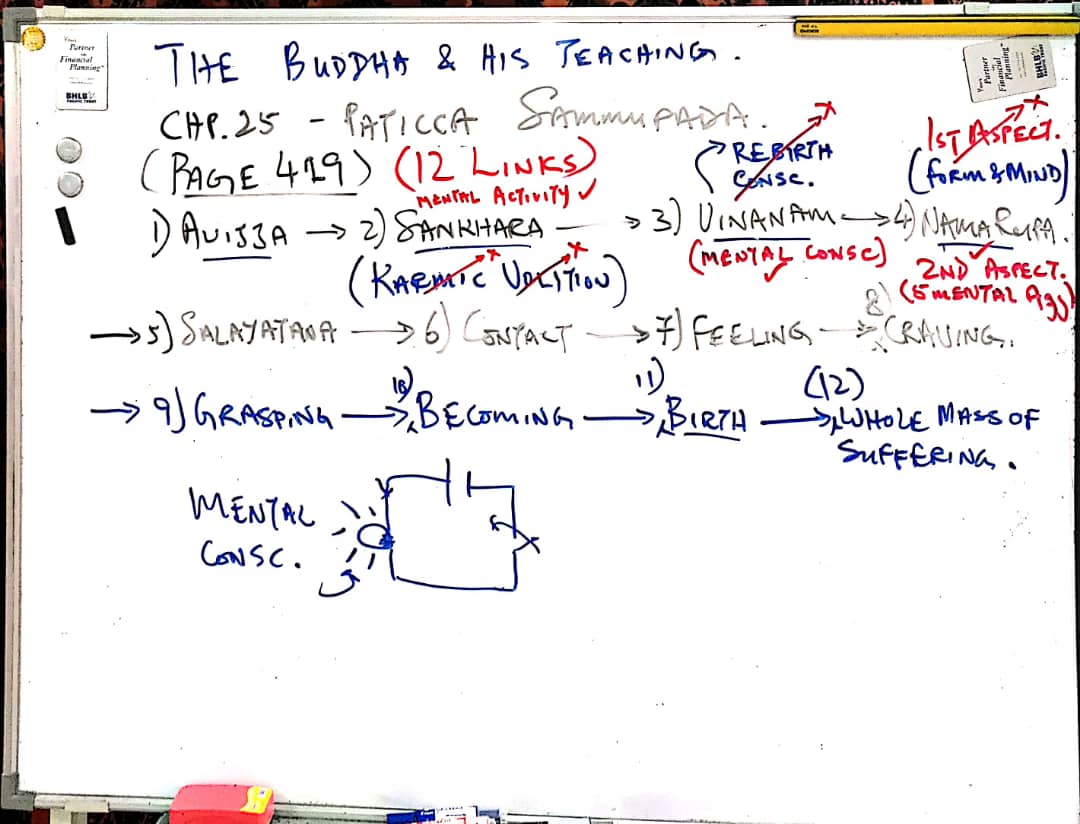 Your
Partner
in
Financial
Planning"
BHLB
THE BUDDHA & HIS TEACHING.
Your
Partner
in
Financial
Planning"
BHLB
CHP.25 - PATICCA SAMMUPADA.
(PAGE 419) (12 LINKS)
REBIRTH
CONSC.
1ST ASPECT.
(FORM & MIND)
MENTAL ACTIVITY ✓
1) AVIJJA → 2) SANKHARA → 3) VINANAM → 4) NAMA RUPA.
(KARMIC VOLITION)
(MENTAL CONSC)
2ND ASPECT.
(5 MENTAL Agg)
→ 5) SALAYATANA → 6) CONTACT → 7) FEELING → 8) CRAVING.
→ 9) GRASPING → 10) BECOMING → 11) BIRTH → (12) WHOLE MASS OF
SUFFERING.
MENTAL
CONSC.